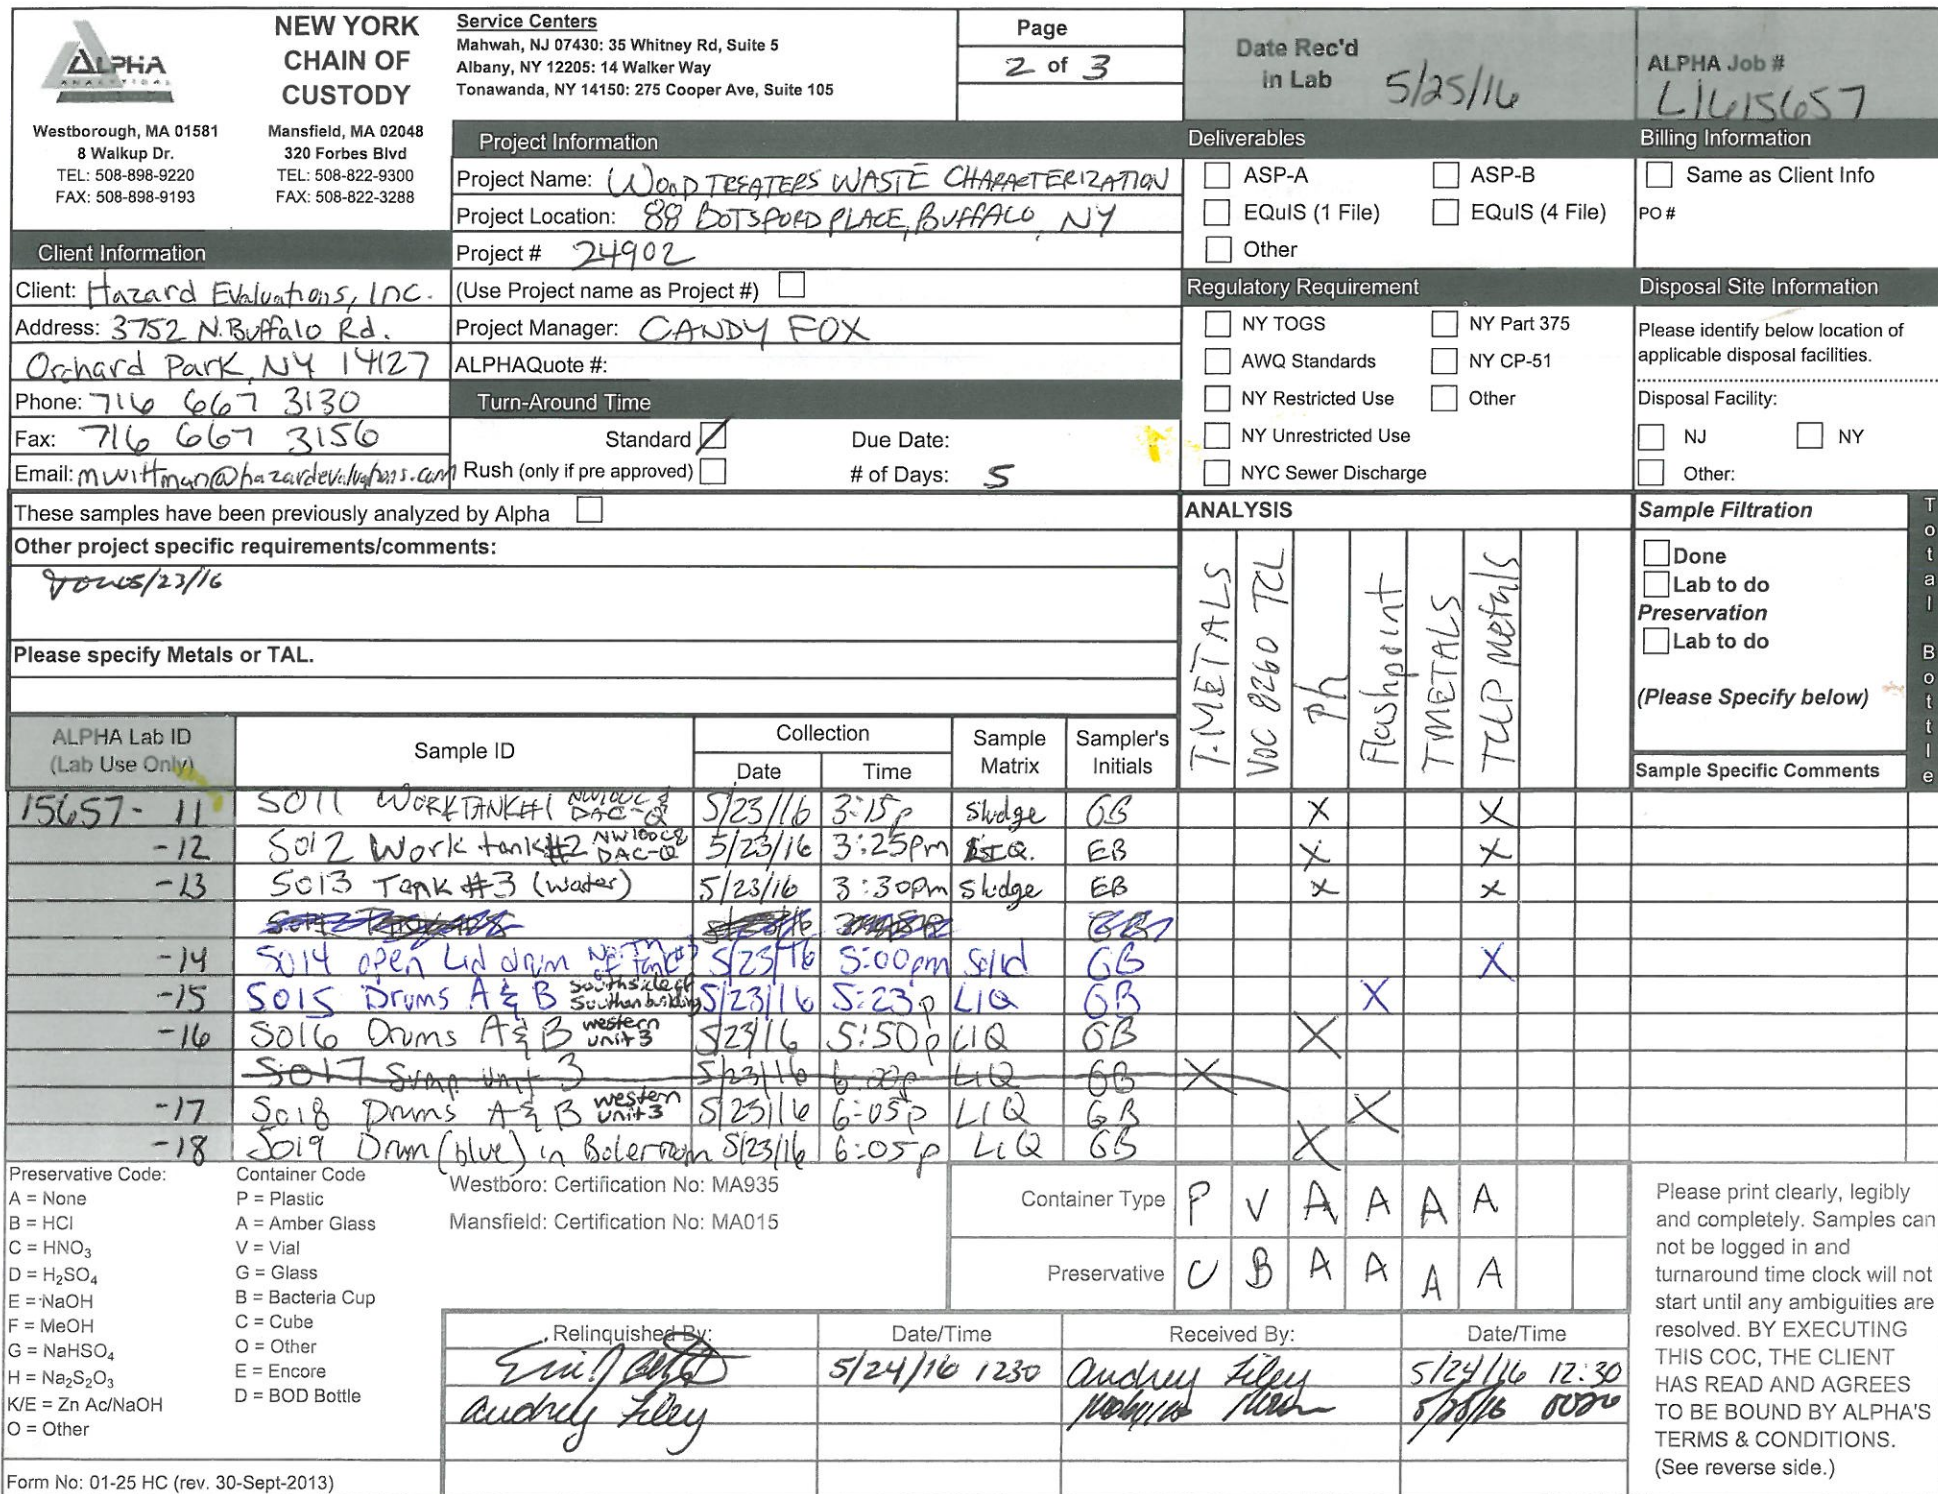 ALPHA
ANALYTICAL
NEW YORK
CHAIN OF
CUSTODY
Westborough, MA 01581
8 Walkup Dr.
TEL: 508-898-9220
FAX: 508-898-9193
Mansfield, MA 02048
320 Forbes Blvd
TEL: 508-822-9300
FAX: 508-822-3288
Service Centers
Mahwah, NJ 07430: 35 Whitney Rd, Suite 5
Albany, NY 12205: 14 Walker Way
Tonawanda, NY 14150: 275 Cooper Ave, Suite 105
Page
2 of 3
Date Rec'd
in Lab 5/25/16
ALPHA Job #
L1615657
Project Information
Project Name: WOOD TREATERS WASTE CHARACTERIZATION
Project Location: 88 BOTSFORD PLACE, BUFFALO, NY
Project # 24902
(Use Project name as Project #)
Project Manager: CANDY FOX
ALPHAQuote #:
Client Information
Client: Hazard Evaluations, Inc.
Address: 3752 N. Buffalo Rd.
Orchard Park, NY 14127
Phone: 716 667 3130
Fax: 716 667 3156
Email: mwittman@hazardevaluations.com
Turn-Around Time
Standard
Due Date:
Rush (only if pre approved)
# of Days: 5
Deliverables
ASP-A
ASP-B
EQuIS (1 File)
EQuIS (4 File)
Other
Regulatory Requirement
NY TOGS
NY Part 375
AWQ Standards
NY CP-51
NY Restricted Use
Other
NY Unrestricted Use
NYC Sewer Discharge
Billing Information
Same as Client Info
PO #
Disposal Site Information
Please identify below location of
applicable disposal facilities.
Disposal Facility:
NJ
NY
Other:
These samples have been previously analyzed by Alpha
Other project specific requirements/comments:
5/23/16
Please specify Metals or TAL.
ANALYSIS
T.METALS
VOC 8260 TCL
Ph
Flashpoint
TMETALS
TCLP Metals
Sample Filtration
Done
Lab to do
Preservation
Lab to do
(Please Specify below)
Sample Specific Comments
Total Bottle
ALPHA Lab ID
(Lab Use Only)
Sample ID
Collection
Date
Time
Sample
Matrix
Sampler's
Initials
15657- 11 S011 WORKTANK#1 NW100C & DAC-Q 5/23/16 3:15p Sludge GB X X
-12 S012 Work tank#2 NW100C & DAC-Q 5/23/16 3:25pm LIQ. EB X X
-13 S013 Tank #3 (water) 5/23/16 3:30pm Sludge EB X X
-14 S014 open Lid drum North of tank#3 5/23/16 5:00pm Solid GB X
-15 S015 Drums A & B South side of Southern building 5/23/16 5:23p LIQ GB X
-16 S016 Drums A & B western unit 3 5/23/16 5:50p LIQ GB X
S017 Sump Unit 3 5/23/16 6:00p LIQ GB X
-17 S018 Drums A & B western unit 3 5/23/16 6:05p LIQ GB X
-18 S019 Drum (blue) in Boiler room 5/23/16 6:05p LiQ GB X
Preservative Code:
A = None
B = HCl
C = HNO₃
D = H₂SO₄
E = NaOH
F = MeOH
G = NaHSO₄
H = Na₂S₂O₃
K/E = Zn Ac/NaOH
O = Other
Container Code
P = Plastic
A = Amber Glass
V = Vial
G = Glass
B = Bacteria Cup
C = Cube
O = Other
E = Encore
D = BOD Bottle
Westboro: Certification No: MA935
Mansfield: Certification No: MA015
Container Type P V A A A A
Preservative C B A A A A
Relinquished By:
Date/Time
Received By:
Date/Time
5/24/16 1230 Audrey Filey 5/24/16 12:30
Audrey Filey 5/25/16 0020
Please print clearly, legibly
and completely. Samples can
not be logged in and
turnaround time clock will not
start until any ambiguities are
resolved. BY EXECUTING
THIS COC, THE CLIENT
HAS READ AND AGREES
TO BE BOUND BY ALPHA'S
TERMS & CONDITIONS.
(See reverse side.)
Form No: 01-25 HC (rev. 30-Sept-2013)